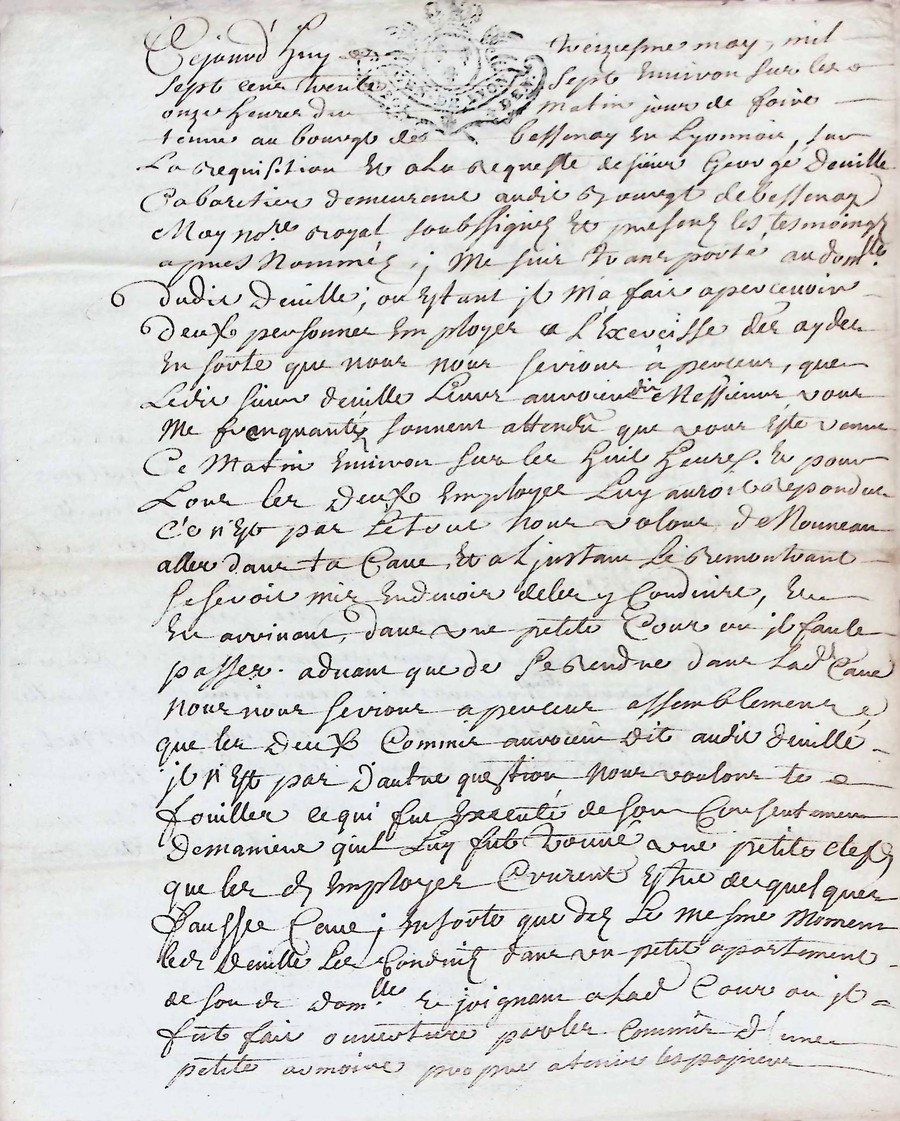 Cejourd'huy treizesme may, mil
sept cent trente sept Environ sur les
onze heures du matin jour de foire
tenue au bourgt de bessenay En Lyonnois, sur
La requisition Et a La Requeste de sieur George deville
Cabaretier demeurant audit Bourgt de bessenay
Moy no.re Royal soubssigné Et presens les tesmoings
apres Nommés, je Me suis transporté au dom.lle
dudit deville; ou Estant jl M'a fait apercevoir
deux personnes Employes a L'Exercisse des aydes
En sorte que nous nous serions aperceus, que
Ledit sieur deville Leurs auroient dit Messieurs vous
Me frequantés souvent attendu que vous este venus
Ce Matin Environ sur les huit heures. Et pour
Lors les deux Employes Luy auroit Repondus
Ce n'Est pas Le tout Nous voulons de Nouveau
aller dans ta Cave, Et a L'jnstant Le Remontrant
se seroit mis En devoir de les y Conduire, Et
En arrivant, dans une petite Cour ou jl faut
passer advant que de se Rendre dans Lad. Cave
Nous nous serions aperceus assemblement
que les deux Commis auroient dit audit deville
jl n'Est pas d'autre question Nous voulons te
fouiller ce qui fut Executé de son Consentement
de maniere qu'il Luy fut trouvé une petite clef
que les d. Employes Crurent Estre de quelques
fausse Cave; En sorte que dez Le mesme Moment
led. deville Les Conduit dans un petit apartement
de son d. dom.lle Rejoignant a Lad. Cour ou jl
fut fait ouverture par les Commis d'une
petite armoire propre a tenir les papiers